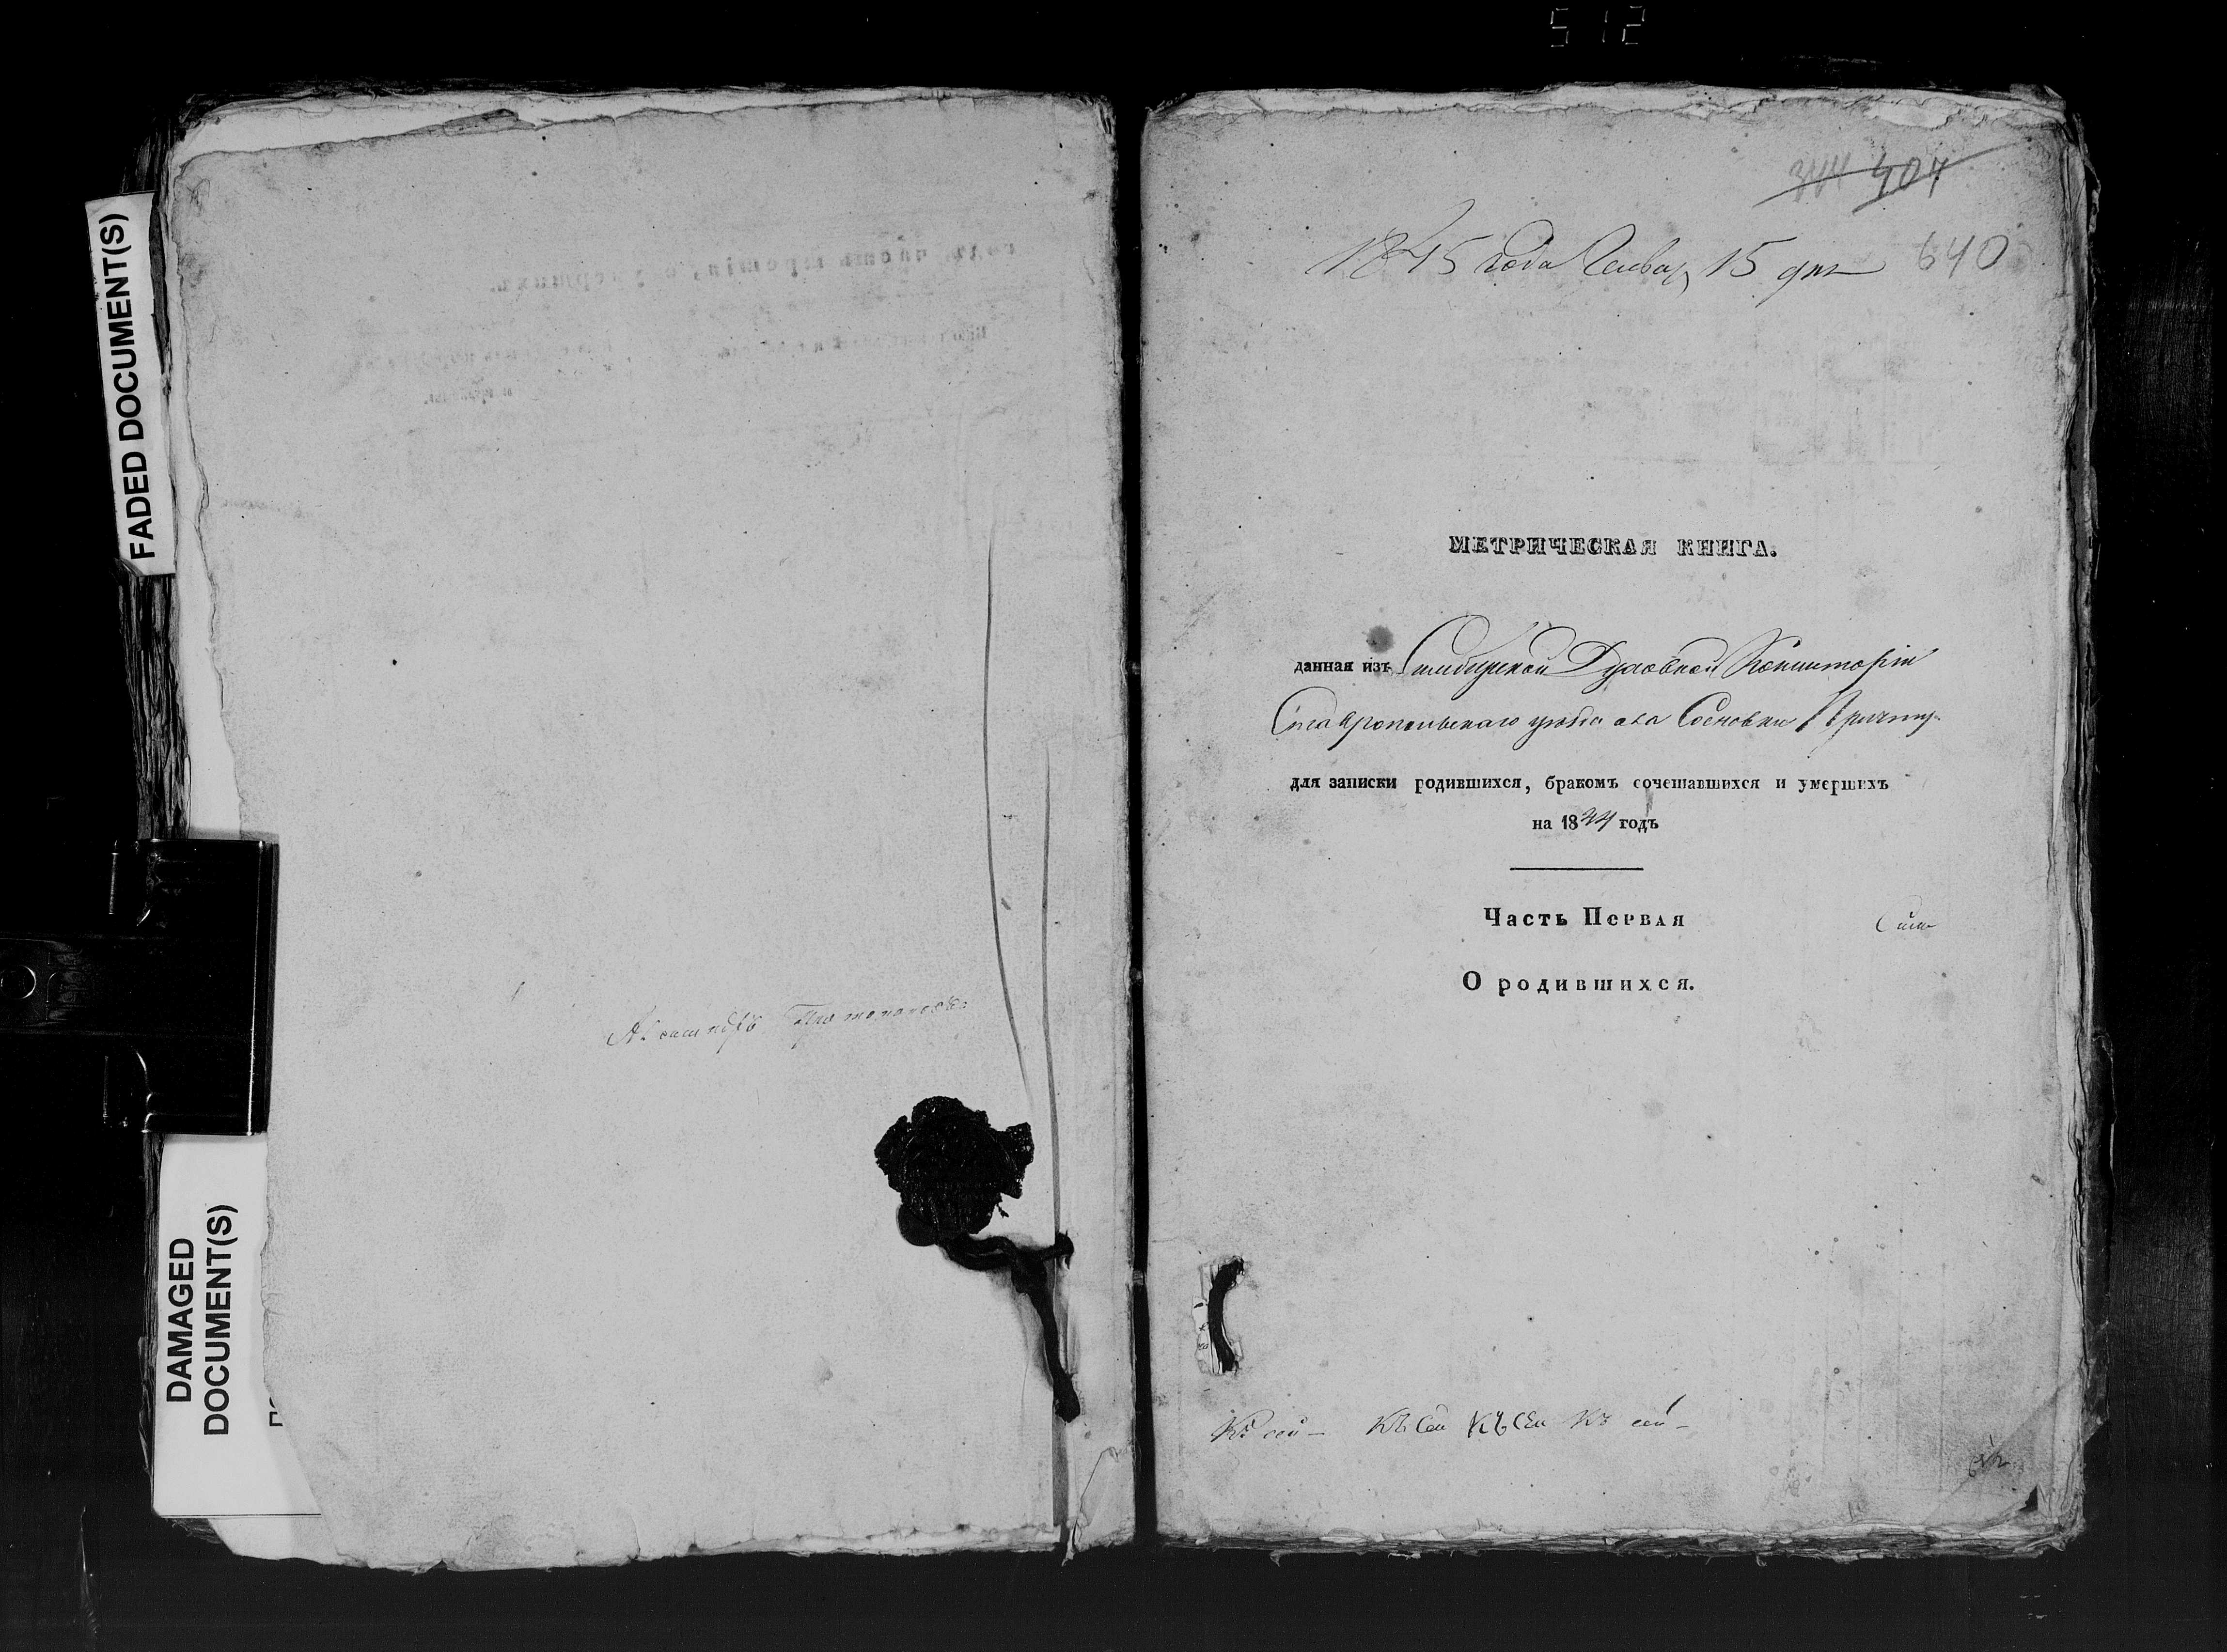 512
FADED DOCUMENT(S)
DAMAGED
DOCUMENT(S)
344 404
1845 года Января 15 дня 640
МЕТРИЧЕСКАЯ КНИГА.
данная изъ Симбирской Духовной Консисторіи
Ставропольскаго уѣзда села Сосновки Причту
для записки родившихся, бракомъ сочетавшихся и умершихъ
на 1844 годъ
Часть Первая
О родившихся.
Къ сей Къ сей Къ сей Къ сей